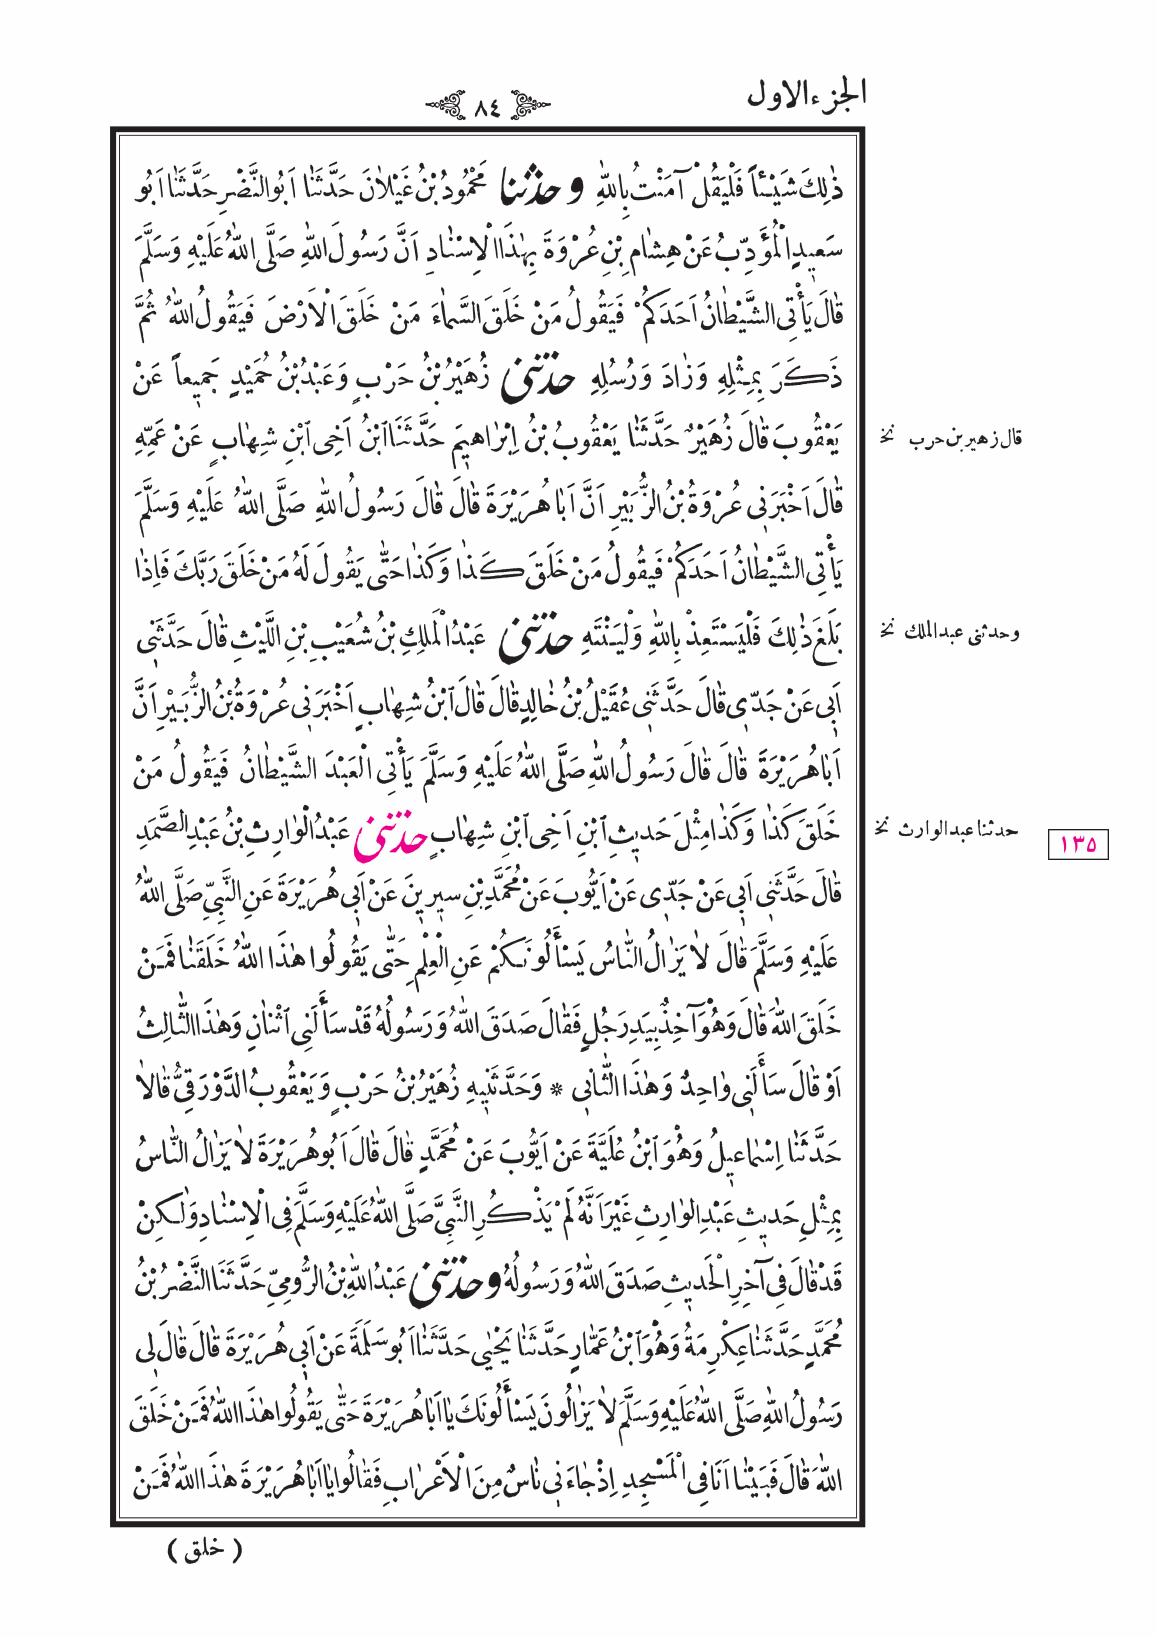 الجزء الاول
٨٤
ذٰلِكَ شَيْئاً فَلْيَقُلْ آمَنْتُ بِاللّٰهِ وحدثنا مَحْمُودُ بْنُ غَيْلاٰنَ حَدَّثَنٰا اَبُو النَّضْرِ حَدَّثَنٰا اَبُو
سَعيدٍ الْمُؤَدِّبُ عَنْ هِشٰامِ بْنِ عُرْوَةَ بِهٰذَا الْاِسْنٰادِ اَنَّ رَسُولَ اللّٰهِ صَلَّى اللّٰهُ عَلَيْهِ وَسَلَّمَ
قٰالَ يَأْتِى الشَّيْطٰانُ اَحَدَكُمْ فَيَقُولُ مَنْ خَلَقَ السَّمٰاءَ مَنْ خَلَقَ الْاَرْضَ فَيَقُولُ اللّٰهُ ثُمَّ
ذَكَرَ بِمِثْلِهِ وَزٰادَ وَرُسُلِهِ حدثنى زُهَيْرُ بْنُ حَرْبٍ وَعَبْدُ بْنُ حُمَيْدٍ جَميعاً عَنْ
يَعْقُوبَ قٰالَ زُهَيْرٌ حَدَّثَنٰا يَعْقُوبُ بْنُ اِبْرٰاهيمَ حَدَّثَنَا ابْنُ اَخِى ابْنِ شِهٰابٍ عَنْ عَمِّهِ
قٰالَ اَخْبَرَنى عُرْوَةُ بْنُ الزُّبَيْرِ اَنَّ اَبٰا هُرَيْرَةَ قٰالَ قٰالَ رَسُولُ اللّٰهِ صَلَّى اللّٰهُ عَلَيْهِ وَسَلَّمَ
يَأْتِى الشَّيْطٰانُ اَحَدَكُمْ فَيَقُولُ مَنْ خَلَقَ كَذٰا وَكَذٰا حَتّٰى يَقُولَ لَهُ مَنْ خَلَقَ رَبَّكَ فَاِذٰا
بَلَغَ ذٰلِكَ فَلْيَسْتَعِذْ بِاللّٰهِ وَلْيَنْتَهِ حدثنى عَبْدُ الْمَلِكِ بْنُ شُعَيْبِ بْنِ اللَّيْثِ قٰالَ حَدَّثَنى
اَبى عَنْ جَدّى قٰالَ حَدَّثَنى عُقَيْلُ بْنُ خٰالِدٍ قٰالَ قٰالَ ابْنُ شِهٰابٍ اَخْبَرَنى عُرْوَةُ بْنُ الزُّبَيْرِ اَنَّ
اَبٰا هُرَيْرَةَ قٰالَ قٰالَ رَسُولُ اللّٰهِ صَلَّى اللّٰهُ عَلَيْهِ وَسَلَّمَ يَأْتِى الْعَبْدَ الشَّيْطٰانُ فَيَقُولُ مَنْ
خَلَقَ كَذٰا وَكَذٰا مِثْلَ حَديثِ ابْنِ اَخِى ابْنِ شِهٰابٍ حدثنى عَبْدُ الْوٰارِثِ بْنُ عَبْدِ الصَّمَدِ
قٰالَ حَدَّثَنى اَبى عَنْ جَدّى عَنْ اَيُّوبَ عَنْ مُحَمَّدِ بْنِ سيرينَ عَنْ اَبى هُرَيْرَةَ عَنِ النَّبِىِّ صَلَّى اللّٰهُ
عَلَيْهِ وَسَلَّمَ قٰالَ لاٰ يَزٰالُ النّٰاسُ يَسْأَلُونَكُمْ عَنِ الْعِلْمِ حَتّٰى يَقُولُوا هٰذَا اللّٰهُ خَلَقَنٰا فَمَنْ
خَلَقَ اللّٰهَ قٰالَ وَهُوَ آخِذٌ بِيَدِ رَجُلٍ فَقٰالَ صَدَقَ اللّٰهُ وَرَسُولُهُ قَدْ سَأَلَنِى اثْنٰانِ وَهٰذَا الثّٰالِثُ
اَوْ قٰالَ سَأَلَنى وٰاحِدٌ وَهٰذَا الثّٰانى * وَحَدَّثَنيهِ زُهَيْرُ بْنُ حَرْبٍ وَيَعْقُوبُ الدَّوْرَقِىُّ قٰالاٰ
حَدَّثَنٰا اِسْمٰاعيلُ وَهُوَ ابْنُ عُلَيَّةَ عَنْ اَيُّوبَ عَنْ مُحَمَّدٍ قٰالَ قٰالَ اَبُو هُرَيْرَةَ لاٰ يَزٰالُ النّٰاسُ
بِمِثْلِ حَديثِ عَبْدِ الوٰارِثِ غَيْرَ اَنَّهُ لَمْ يَذْكُرِ النَّبِىَّ صَلَّى اللّٰهُ عَلَيْهِ وَسَلَّمَ فِى الْاِسْنٰادِ وَلٰكِنْ
قَدْ قٰالَ فى آخِرِ الْحَديثِ صَدَقَ اللّٰهُ وَرَسُولُهُ وحدثنى عَبْدُ اللّٰهِ بْنُ الرُّومِىِّ حَدَّثَنَا النَّضْرُ بْنُ
مُحَمَّدٍ حَدَّثَنٰا عِكْرِمَةُ وَهُوَ ابْنُ عَمّٰارٍ حَدَّثَنٰا يَحْيٰى حَدَّثَنٰا اَبُو سَلَمَةَ عَنْ اَبى هُرَيْرَةَ قٰالَ قٰالَ لى
رَسُولُ اللّٰهِ صَلَّى اللّٰهُ عَلَيْهِ وَسَلَّمَ لاٰ يَزٰالُونَ يَسْأَلُونَكَ يٰا اَبٰا هُرَيْرَةَ حَتّٰى يَقُولُوا هٰذَا اللّٰهُ فَمَنْ خَلَقَ
اللّٰهَ قٰالَ فَبَيْنٰا اَنَا فِى الْمَسْجِدِ اِذْ جٰاءَنى نٰاسٌ مِنَ الْاَعْرٰابِ فَقٰالُوا يٰا اَبٰا هُرَيْرَةَ هٰذَا اللّٰهُ فَمَنْ
قال زهير بن حرب نخ
وحدثنى عبدالملك نخ
حدثنا عبدالوارث نخ
١٣٥
( خلق )